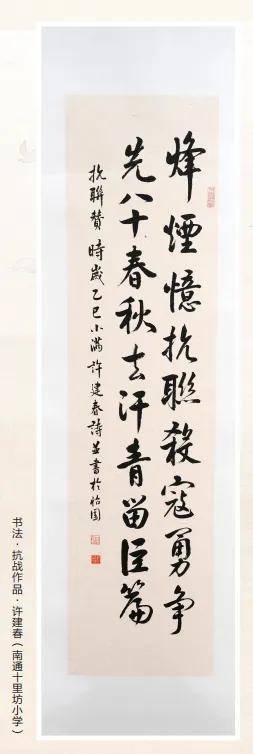 烽煙憶抗聯殺寇勇争
先八十春秋去汗青留巨篇
抗聯赞 時歲乙巳小滿許建春詩並書於怡園
书法·抗战作品·许建春（南通十里坊小学）